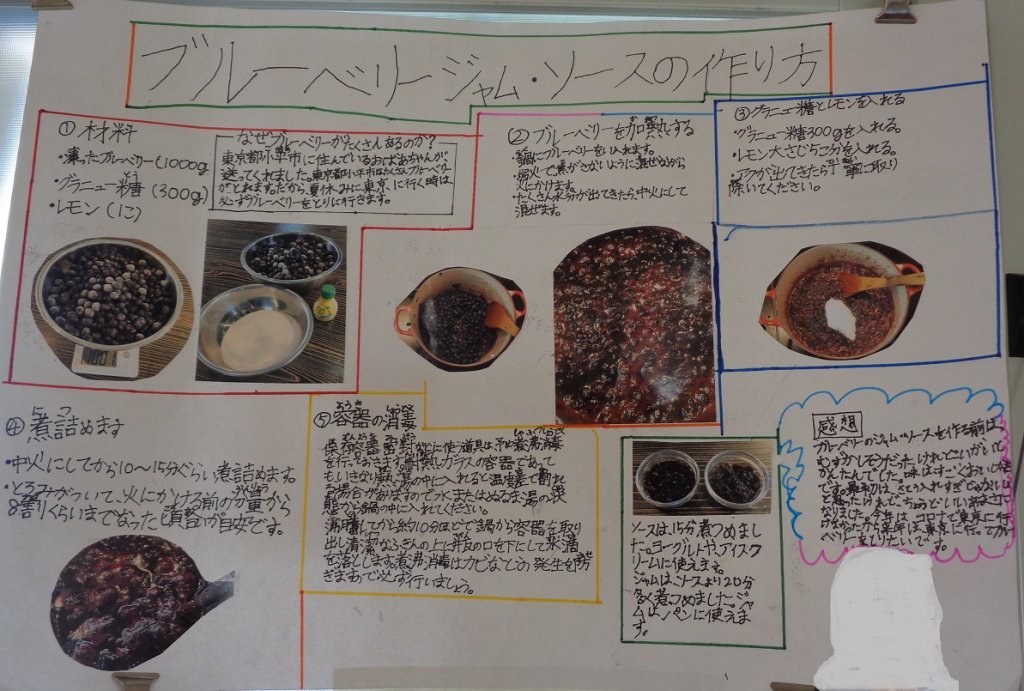 ブルーベリージャム・ソースの作り方
① 材料
・凍ったブルーベリー(1000g
・グラニュー糖(300g)
・レモン(1こ)
なぜブルーベリーがたくさんあるのか?
東京都小平市に住んでいるおばあちゃんが、
送ってくれました。東京都小平市はたくさんブルーベリー
がとれます。だから、夏休みに東京に行く時は、
必ずブルーベリーをとりに行きます。
1001
② ブルーベリーを加熱する
・鍋にブルーベリーを入れます。
・弱火で焦がさないように混ぜながら
火にかけます。
・たくさん水分が出てきたら、中火にして
混ぜます。
③グラニュー糖とレモンを入れる
グラニュー糖300gを入れる。
・レモン大さじ1こ分を入れる。
・アクが出てきたら丁寧に取り
除いてください。
④ 煮詰めます
・中火にしてから10〜15分ぐらい煮詰めます。
・とろみがついて、火にかける前の分量から
8割くらいまでなった質替が目安です。
⑤容器の消毒
保存容器や
に使う道具は予め煮沸消毒
を行なさます。
ガラスの容器であって
もいきなり熱い湯の中に入れると温度差で割れ
る場合がありますので水またはぬるま湯の状
態から鍋の中に入れてください。
沸騰してから約10分ほどで鍋から容器を取り
出し清潔なふきんの上に
の口を下にして水滴
を落とします。煮沸消毒はカビなどの発生を防
ぎますので必ず行いましょう。
ソースは15分煮つめまし
た。ヨーグルトやアイスク
リームに使えます。
ジャムは、ソースより20分
多く煮つめました。ジャ
ムは、パンに使えま
す。
感想
ブルーベリーのジャム・ソースを作る前は
むずかしそうだったけれどいがいと
かんたんでした。味はすごくおいし
です。最初は、さとう入れすぎじゃない
と思ったれどちょうどいい
なりました。今年は、コロナで東京に行
けなかったから来年は、東京に行ってブルー
ベリーをとりたいです。